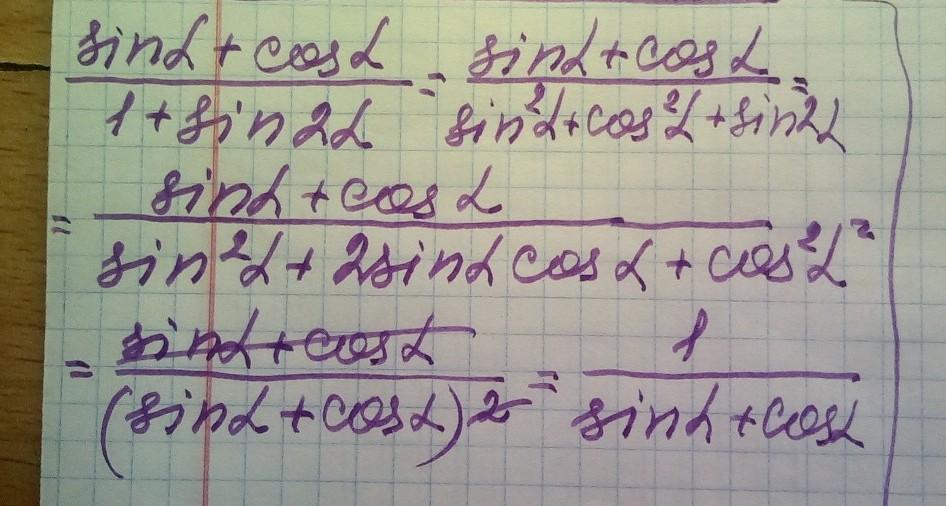 (sinα + cosα)/(1 + sin2α) = (sinα + cosα)/(sin²α + cos²α + sin2α) =
= (sinα + cosα)/(sin²α + 2sinα cosα + cos²α) =
= (sinα + cosα)/(sinα + cosα)² = 1/(sinα + cosα)